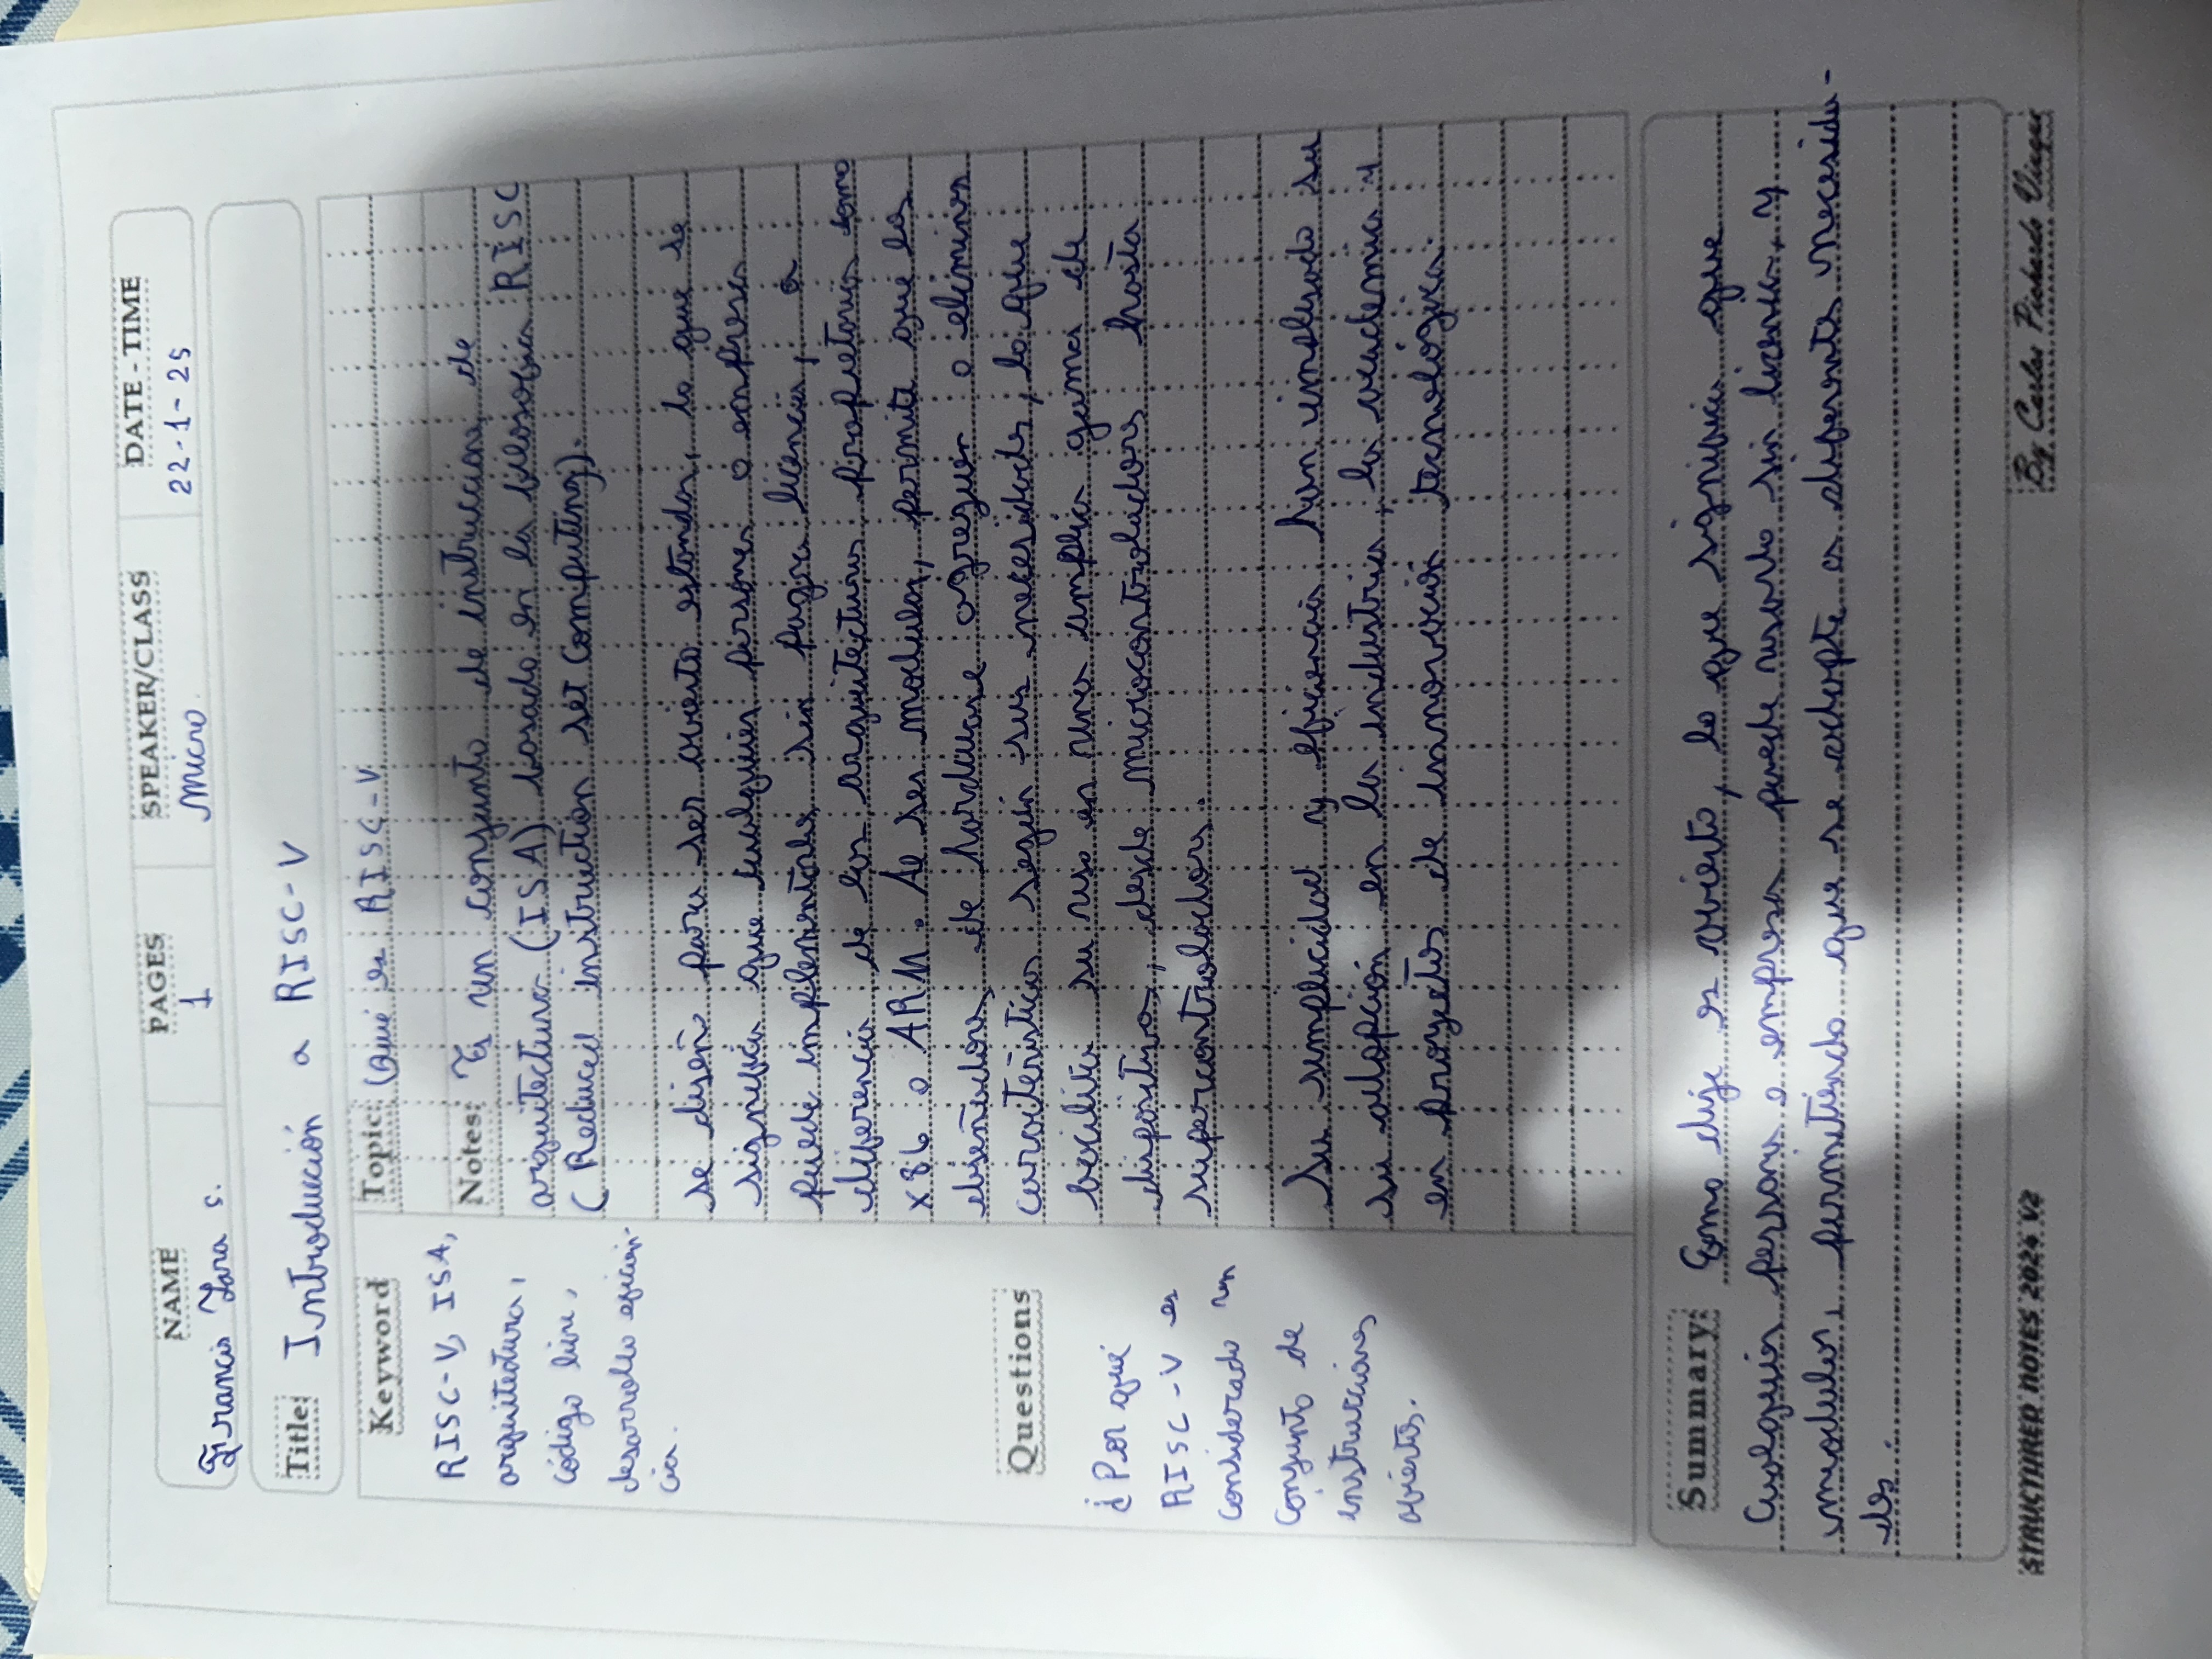 NAME
Francis Jara S.
PAGES
1
SPEAKER/CLASS
Micro.
DATE - TIME
22-1-25
Title: Introducción a RISC-V
Keyword
RISC-V, ISA,
arquitectura,
código libre,
desarrollo eficien-
cia.
Questions
¿Por qué
RISC-V es
considerado un
Conjunto de
instrucciones
abiertos.
Topic: Qué es RISC-V
Notes: Es un conjunto de instrucciones de
arquitectura (ISA) basado en la filosofia RISC
(Reduced instruction set Computing).
se diseño para ser abierto estandar, lo que se
significa que cualquier persona o empresa
puede implementarla sin pagra licencia, a
diferencia de las arquitecturas propietarias como
x86 o ARM. Al ser modular, permite que los
diseñadores de hardware agreguen o eliminen
caracteristicas según sus necesidades, lo que
facilita su uso en una amplia gama de
dispositivos, desde microcontroladores hasta
supercontroladores.
Su simplicidad y eficiencia han impulsado su
su adopción en la industria, la academia y
en proyectos de innovación tecnológica.
Summary: Como dije es abierto, lo que significa que
cualquier persona o empresa puede usarlo sin licencia, y
modular, permitiendo que se adapte a diferentes necesida-
des.
STRUCTURED NOTES 2024 V2
By Carlos Pichardo Viuque